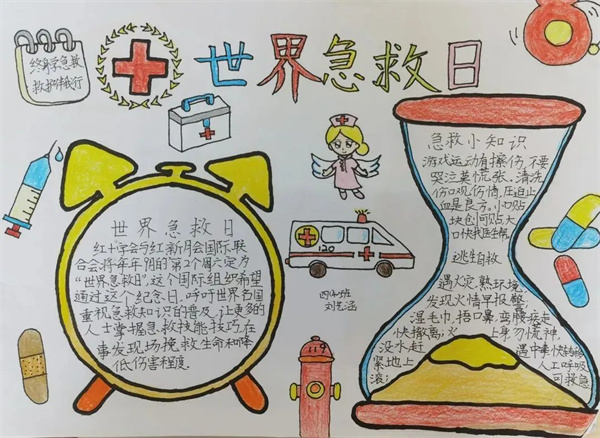 终身学急救
救护伴我行
世界急救日
世界急救日
红十字会与红新月会国际联
合会将年年9月的第2个周六定为
“世界急救日”,这个国际组织希望
通过这个纪念日,呼吁世界各国
重视急救知识的普及,让更多的
人士掌握急救技能技巧,在
事发现场挽救生命和降
低伤害程度.
120
四(4)班
119
急救小知识
游戏运动有擦伤,不要
哭泣莫慌张.清洗
伤口观伤情,压迫止
血是良方.小口贴
块创可贴,大
口快找医生帮.
逃生自救
遇火灾,熟环境,
发现火情早报警,
湿毛巾,捂口鼻,弯腰疾走
快撤离;火上身勿慌神,
没水赶
紧地上
滚;
遇中毒快转移
人工呼吸
可救急